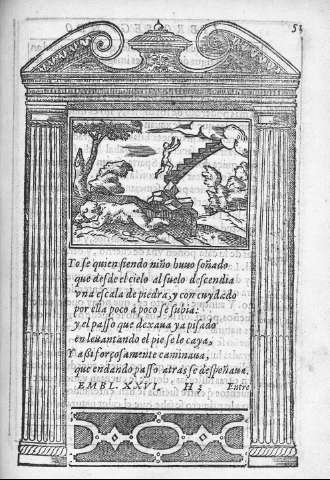 58
Yo se quien siendo niño huuo soñado
que desde el cielo al suelo descendia
vna escala de piedra, y con cuydado
por ella poco a poco se subia:
y el passo que dexaua ya pisado
en leuantando el pie se le caya,
Y assi forçosamente caminaua,
que en dando passo atras se despeñaua.
EMBL. XXVI. H 3 Entre